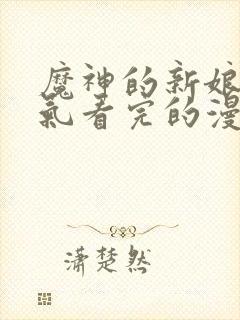 魔神的新娘
氣看完的漫
潇楚然